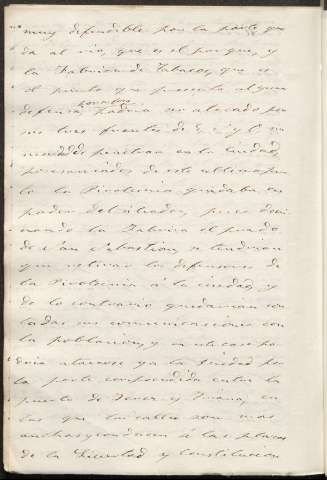 muy defendible por la parte que
da al rio, que es el parque, y
la Fabrica de Tabacos, que es
el punto que presenta alguna
defensa, podria ser atacado por
sus tres frentes de S. E. y O. sin
penetrar en la ciudad,
posesionados de este ultimo pun
to la Pirotecnia quedaba en
poder del sitiador, pues domi
nando la Fabrica el prado
de San Sebastian, se tendrian
que retirar los defensores de
la Pirotecnia á la ciudad, y
de lo contrario quedarian cor
tadas sus comunicaciones con
la poblacion, y en este caso po
dria atacarse ya la ciudad por
la parte comprendida entre la
puerta de Jerez y Triana, en
las que las calles son mas
anchas y conducen á las plazas
de la Libertad y Constitucion